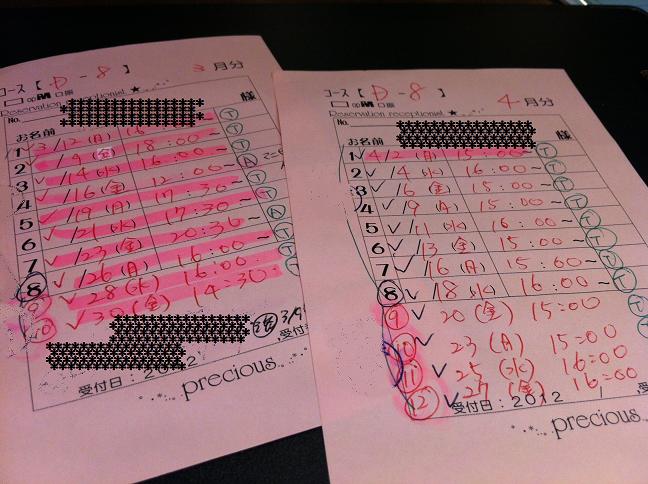 コース【 D - 8 】 3月分
Reservation receptionist ★
No.
お名前 様
1 ✓ 3/12 (月) 16
2 ✓ /9 (金) 18:00~ Ⓣ
3 ✓ /14 (水) 16:00~ Ⓐ
4 ✓ /16 (金) 12:00~ Ⓣ
5 ✓ /19 (月) 17:30~ Ⓣ
6 ✓ /21 (水) 17:30~ Ⓐ
7 ✓ /23 (金) 20:30~ Ⓣ
⑧ ✓ /26 (月) 16:00~ Ⓣ
⑨ ✓ 28 (水) 16:00~
⑩ ✓ 30 (金) 14:30~
受付
受付日:2012
precious
コース【 D - 8 】 4月分
Reservation receptionist ★
No.
お名前 様
1 ✓ 4/2 (月) 15:00~ Ⓣ
2 ✓ /4 (水) 16:00~ Ⓣ
3 ✓ /6 (金) 15:00~ Ⓣ
4 ✓ /9 (月) 15:00~ Ⓣ
5 ✓ /11 (水) 16:00~ Ⓣ
6 ✓ /13 (金) 15:00~ Ⓣ
7 ✓ /16 (月) 15:00~ Ⓣ
⑧ ✓ /18 (水) 16:00~ Ⓣ
⑨ ✓ 20 (金) 15:00
⑩ ✓ 23 (月) 15:00
⑪ ✓ 25 (水) 16:00
⑫ ✓ 27 (金) 16:00
受付日:2012
precious